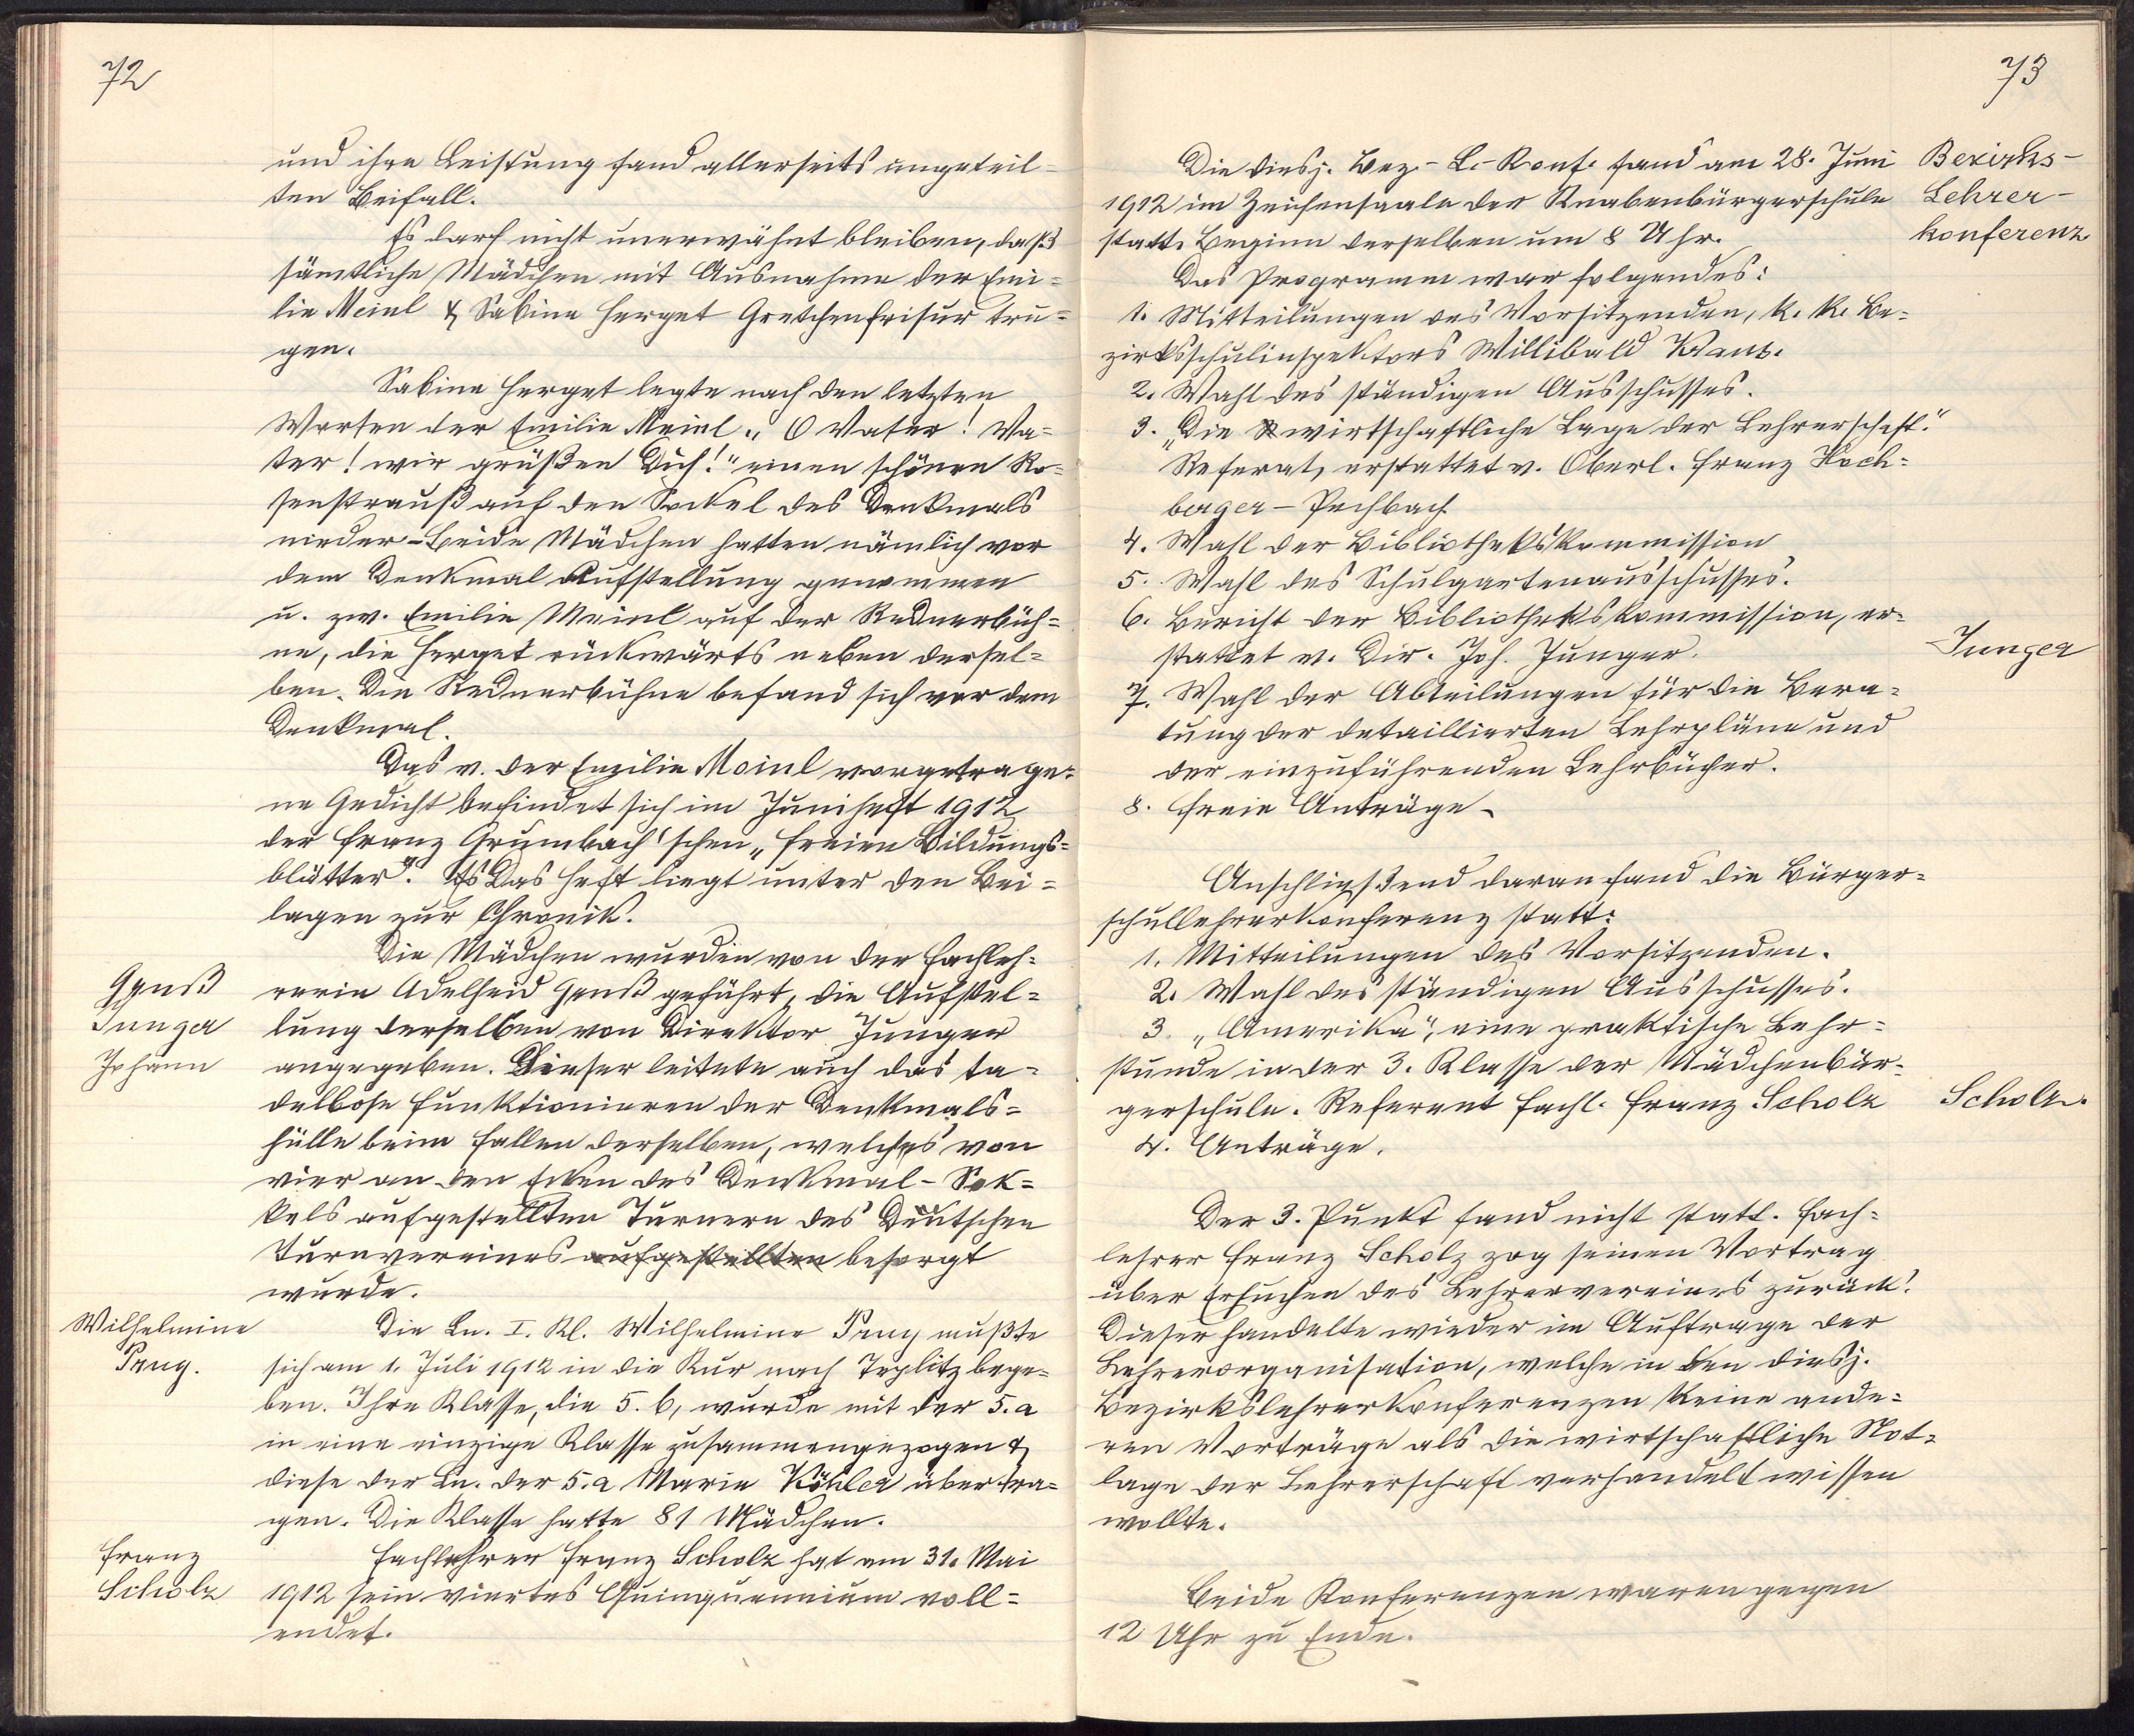 72
und ihre Leistung fand allerseits ungeteil-
ten Beifall.
Es darf nicht unerwähnt bleiben, daß
sämtliche Mädchen mit Ausnahme der Emi-
lie Meinl & Sabine Herget Gretchenfrisur tru-
gen.
Sabine Herget legte nach den letzten
Worten der Emilie Meinl „O Vater! Va-
ter! wir grüßen Dich!" einen schönen Ro-
senstrauß auf den Sockel des Denkmals
nieder - Beide Mädchen hatten nämlich vor
dem Denkmal Aufstellung genommen
u. zw. Emilie Meinl auf der Rednerbüh-
ne, die Herget rückwärts neben dersel-
ben. Die Rednerbühne befand sich vor dem
Denkmal.
Das v. der Emilie Meinl vorgetrage-
ne Gedicht befindet sich im Juniheft 1912
der Franz Grumbach'schen „Freien Bildungs-
blätter". Es Das Heft liegt unter den Bei-
lagen zur Chronik.
Die Mädchen wurden von der Fachleh-
Ganß rerin Adelheid Ganß geführt, die Aufstel-
Junger lung derselben von Direktor Junger
Johann angegeben. Dieser leitete auch das ta-
dellose Funktionieren der Denkmals-
hülle beim Fallen derselben, welches von
vier an den Ecken des Denkmal-Sok-
kels aufgestellten Turnern des Deutschen
Turnvereines aufgestellten besorgt
wurde.
Wilhelmine Die Ln. I. Kl. Wilhelmine Prug mußte
Prug. sich am 1. Juli 1912 in die Kur nach Teplitz bege-
ben. Ihre Klasse, die 5. b, wurde mit der 5. a
in eine einzige Klasse zusammengezogen &
diese der Ln. der 5. a Marie Köhler übertra-
gen. Die Klasse hatte 81 Mädchen.
Franz Fachlehrer Franz Scholz hat am 31. Mai
Scholz 1912 sein viertes Quinquennium voll-
endet.
73
Die diesj. Bez.-L.-Konf. fand am 28. Juni Bezirks-
1912 im Zeichensaale der Knabenbürgerschule Lehrer-
statt. Beginn derselben um 8 Uhr. konferenz
Das Programm war folgendes:
1. Mitteilungen des Vorsitzenden, k. k. Be-
zirksschulinspektors Willibald
2. Wahl des ständigen Ausschusses.
3. „Die wirtschaftliche Lage der Lehrerschaft."
Referat, erstattet v. Oberl. Franz Hoch-
berger - Pechbach
4. Wahl der Bibliothekskommission
5. Wahl des Schulgartenausschusses.
6. Bericht der Bibliothekskommission, er-
stattet v. Dir. Joh. Junger. Junger
7. Wahl der Abteilungen für die Bera-
tung der detaillierten Lehrpläne und
der einzuführenden Lehrbücher.
8. Freie Anträge -
Anschließend daran fand die Bürger-
schullehrerkonferenz statt:
1. Mitteilungen des Vorsitzenden.
2. Wahl des ständigen Ausschusses.
3. „Amerika", eine praktische Lehr-
stunde in der 3. Klasse der Mädchenbür-
gerschule. Referent Fachl. Franz Scholz Scholz.
4. Anträge.
Der 3. Punkt fand nicht statt. Fach-
lehrer Franz Scholz zog seinen Vortrag
über Ersuchen des Lehrervereines zurück.
Dieser handelte wieder im Auftrage der
Lehrerorganisation, welche in den diesj.
Bezirkslehrerkonferenzen keine ande-
ren Vorträge als die wirtschaftliche Not-
lage der Lehrerschaft verhandelt wissen
wollte.
Beide Konferenzen waren gegen
12 Uhr zu Ende.